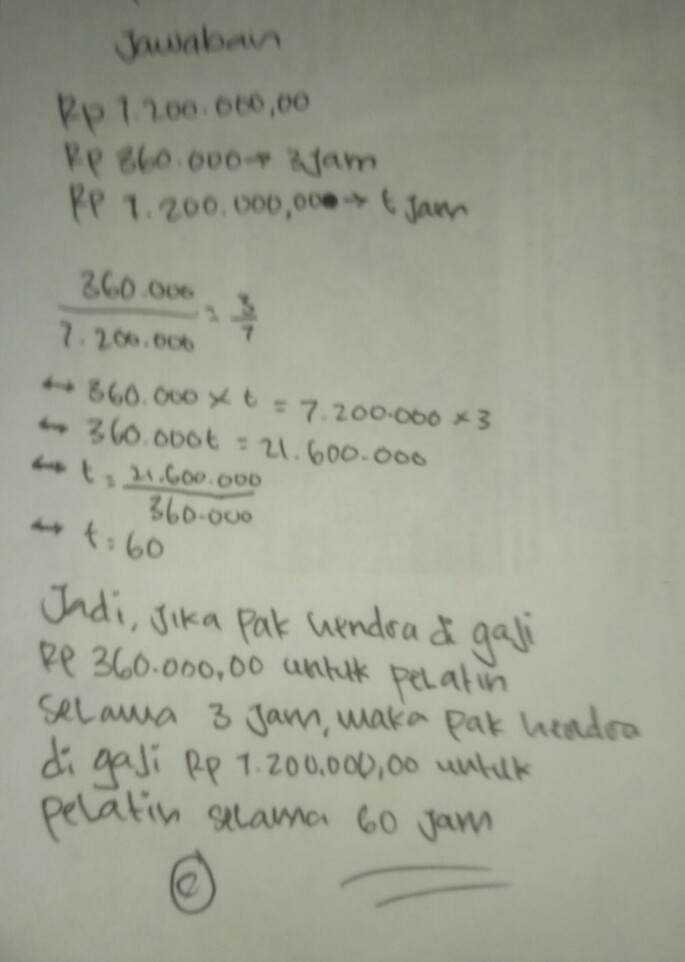 Jawaban
Rp 7.200.000,00
Rp 360.000 → 3 jam
Rp 7.200.000,00 → t jam
360.000
7.200.000
= 3/t
↔ 360.000 × t = 7.200.000 × 3
↔ 360.000t = 21.600.000
↔ t = 21.600.000
360.000
↔ t = 60
Jadi, jika pak hendra di gaji
Rp 360.000,00 untuk pelatin
selama 3 jam, maka pak hendra
di gaji Rp 7.200.000,00 untuk
pelatin selama 60 jam
(e)